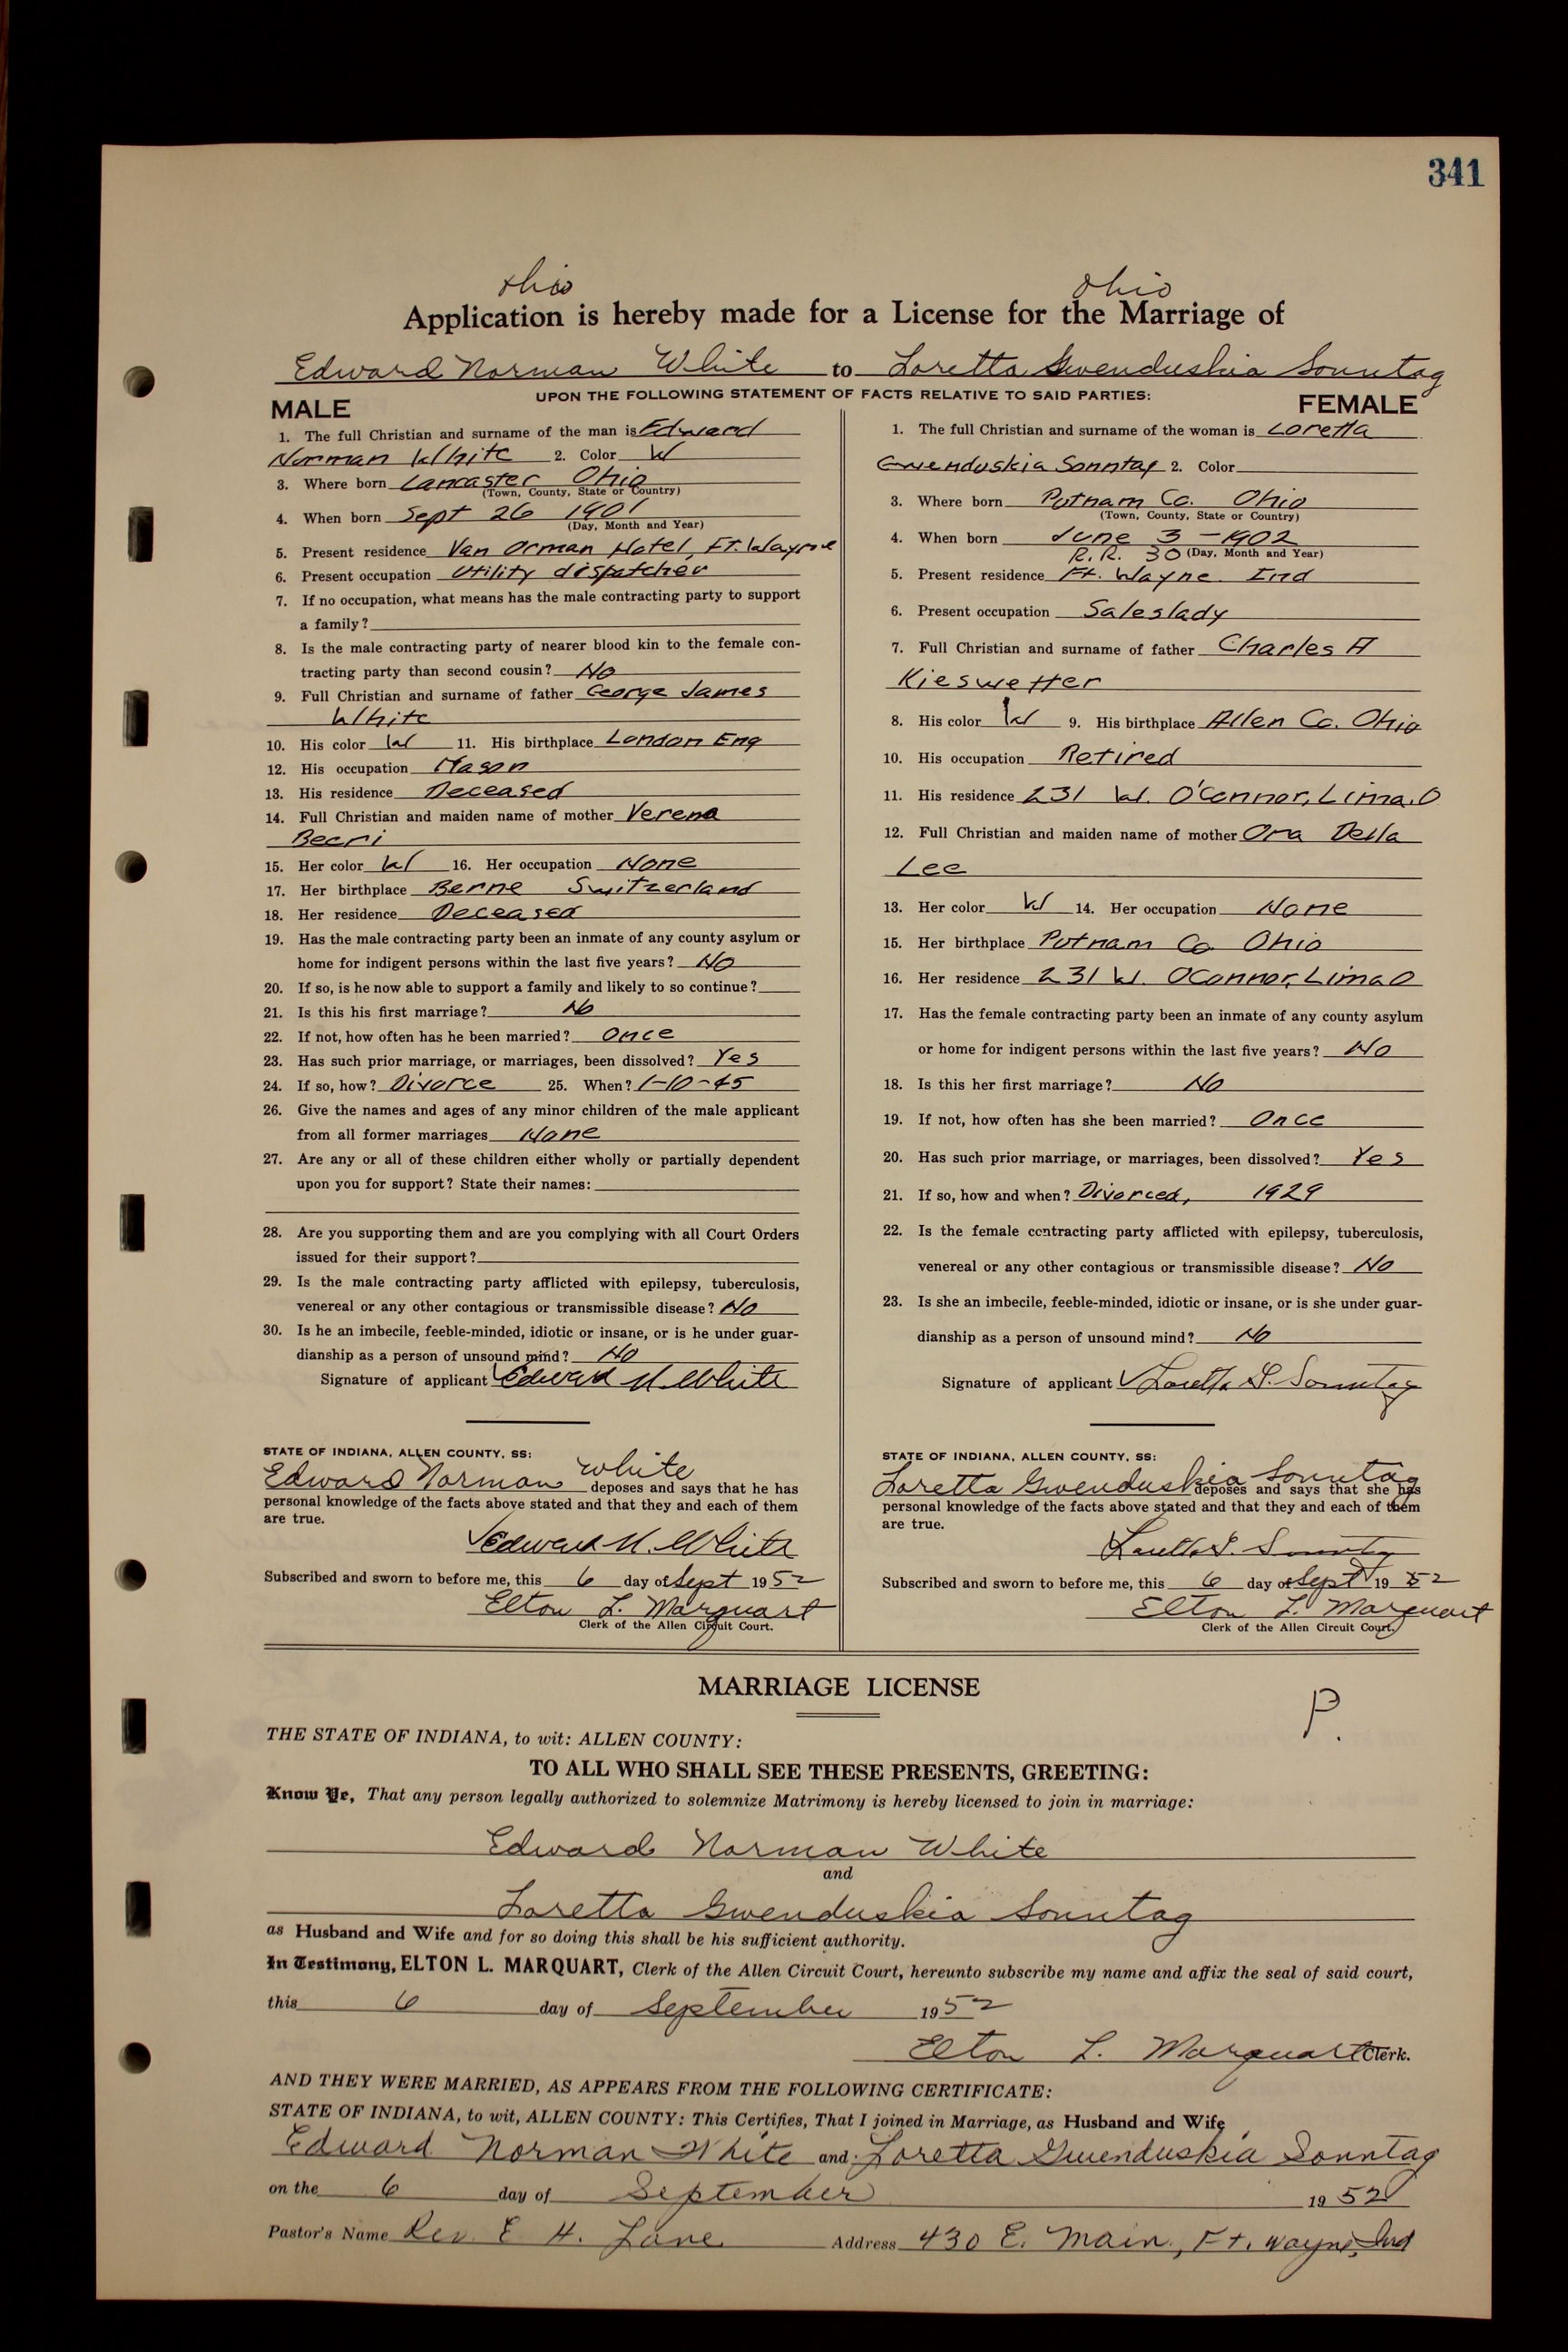 341
Ohio Ohio
Application is hereby made for a License for the Marriage of
Edward Norman White to Loretta Gwenduskia Sonntag
UPON THE FOLLOWING STATEMENT OF FACTS RELATIVE TO SAID PARTIES:
MALE
1. The full Christian and surname of the man is Edward
Norman White 2. Color W
3. Where born Lancaster Ohio
(Town, County, State or Country)
4. When born Sept 26 1901
(Day, Month and Year)
5. Present residence Van Orman Hotel, Ft. Wayne
6. Present occupation Utility dispatcher
7. If no occupation, what means has the male contracting party to support
a family?
8. Is the male contracting party of nearer blood kin to the female con-
tracting party than second cousin? No
9. Full Christian and surname of father George James
White
10. His color W 11. His birthplace London Eng
12. His occupation Mason
13. His residence Deceased
14. Full Christian and maiden name of mother Verena
Beeri
15. Her color W 16. Her occupation None
17. Her birthplace Berne Switzerland
18. Her residence Deceased
19. Has the male contracting party been an inmate of any county asylum or
home for indigent persons within the last five years? No
20. If so, is he now able to support a family and likely to so continue?
21. Is this his first marriage? No
22. If not, how often has he been married? Once
23. Has such prior marriage, or marriages, been dissolved? Yes
24. If so, how? Divorce 25. When? 1-10-45
26. Give the names and ages of any minor children of the male applicant
from all former marriages None
27. Are any or all of these children either wholly or partially dependent
upon you for support? State their names:
28. Are you supporting them and are you complying with all Court Orders
issued for their support?
29. Is the male contracting party afflicted with epilepsy, tuberculosis,
venereal or any other contagious or transmissible disease? No
30. Is he an imbecile, feeble-minded, idiotic or insane, or is he under guar-
dianship as a person of unsound mind? No
Signature of applicant Edward N. White
STATE OF INDIANA, ALLEN COUNTY, SS:
Edward Norman White deposes and says that he has
personal knowledge of the facts above stated and that they and each of them
are true.
Edward N. White
Subscribed and sworn to before me, this 6 day of Sept 1952
Elton L. Marquart
Clerk of the Allen Circuit Court.
FEMALE
1. The full Christian and surname of the woman is Loretta
Gwenduskia Sonntag 2. Color
3. Where born Putnam Co. Ohio
(Town, County, State or Country)
4. When born June 3 - 1902
R.R. 30 (Day, Month and Year)
5. Present residence Ft. Wayne Ind
6. Present occupation Saleslady
7. Full Christian and surname of father Charles A
Kieswetter
8. His color W 9. His birthplace Allen Co. Ohio
10. His occupation Retired
11. His residence 231 W. O'Connor, Lima, O
12. Full Christian and maiden name of mother Ora Della
Lee
13. Her color W 14. Her occupation None
15. Her birthplace Putnam Co Ohio
16. Her residence 231 W. OConnor, Lima O
17. Has the female contracting party been an inmate of any county asylum
or home for indigent persons within the last five years? No
18. Is this her first marriage? No
19. If not, how often has she been married? Once
20. Has such prior marriage, or marriages, been dissolved? Yes
21. If so, how and when? Divorced, 1929
22. Is the female contracting party afflicted with epilepsy, tuberculosis,
venereal or any other contagious or transmissible disease? No
23. Is she an imbecile, feeble-minded, idiotic or insane, or is she under guar-
dianship as a person of unsound mind? No
Signature of applicant Loretta G. Sonntag
STATE OF INDIANA, ALLEN COUNTY, SS:
Loretta Gwenduskia Sonntag deposes and says that she has
personal knowledge of the facts above stated and that they and each of them
are true.
Loretta G. Sonntag
Subscribed and sworn to before me, this 6 day of Sept 1952
Elton L. Marquart
Clerk of the Allen Circuit Court.
MARRIAGE LICENSE
P.
THE STATE OF INDIANA, to wit: ALLEN COUNTY:
TO ALL WHO SHALL SEE THESE PRESENTS, GREETING:
Know Ye, That any person legally authorized to solemnize Matrimony is hereby licensed to join in marriage:
Edward Norman White
and
Loretta Gwenduskia Sonntag
as Husband and Wife and for so doing this shall be his sufficient authority.
In Testimony, ELTON L. MARQUART, Clerk of the Allen Circuit Court, hereunto subscribe my name and affix the seal of said court,
this 6 day of September 1952
Elton L. Marquart Clerk.
AND THEY WERE MARRIED, AS APPEARS FROM THE FOLLOWING CERTIFICATE:
STATE OF INDIANA, to wit, ALLEN COUNTY: This Certifies, That I joined in Marriage, as Husband and Wife
Edward Norman White and Loretta Gwenduskia Sonntag
on the 6 day of September 1952
Pastor's Name Rev. E H. Lane Address 430 E. Main, Ft. Wayne, Ind